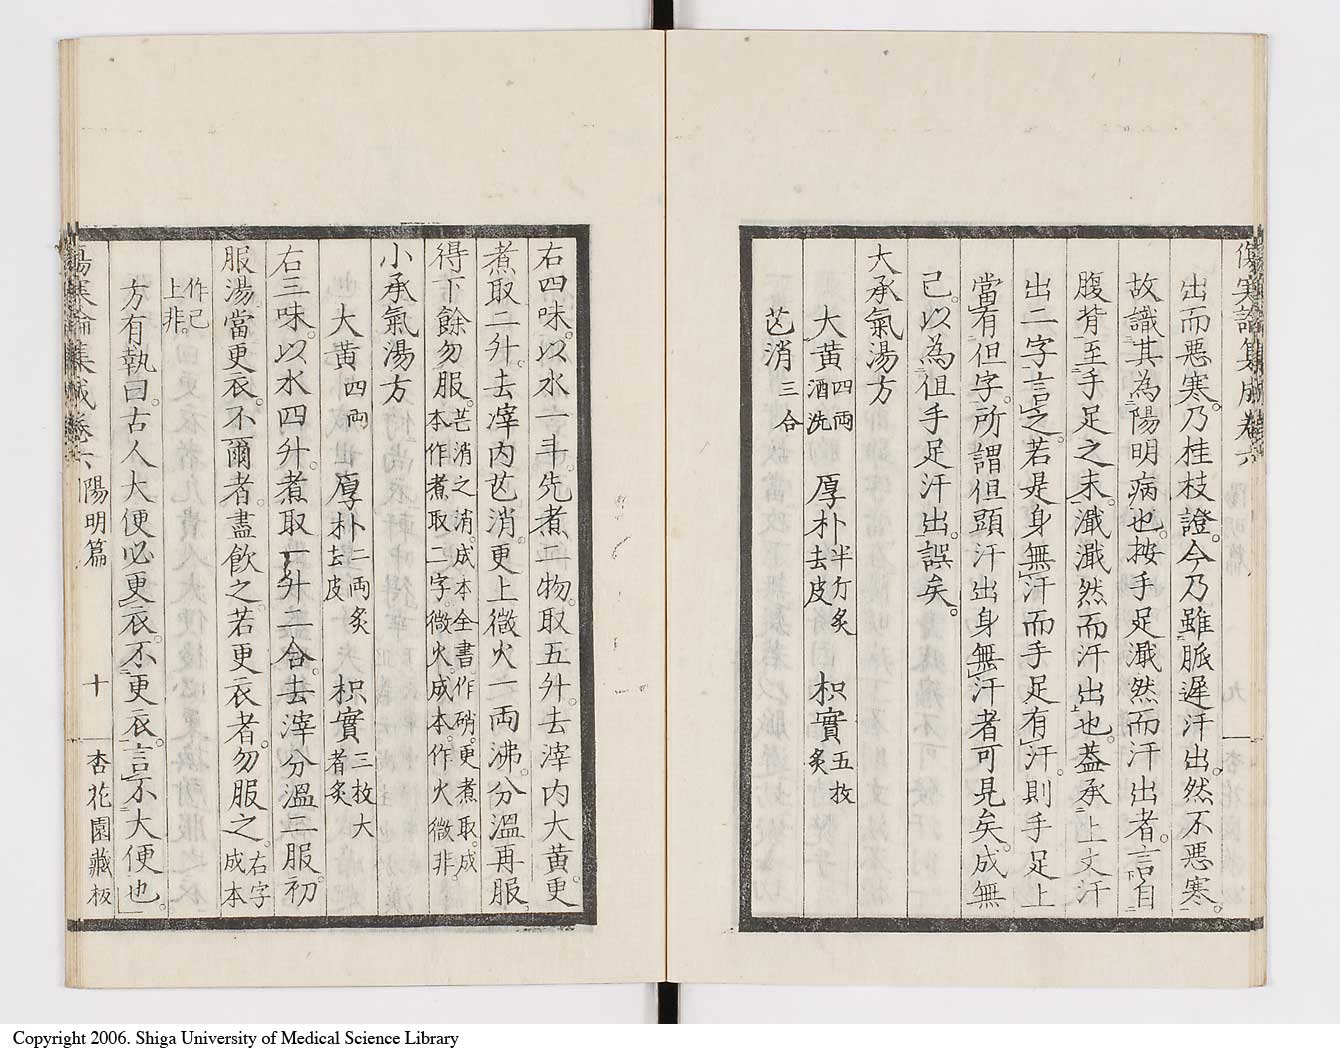 出而悪寒。乃桂枝證。今乃雖脈遅汗出。然不悪寒。
故識其為陽明病也。按手足濈然而汗出者。言自
腹背至手足之末。濈濈然而汗出也。蓋承上文汗
出二字言之。若是身無汗而手足有汗。則手足上
當有但字。所謂但頭汗出身無汗者可見矣。成無
己。以為但手足汗出。誤矣。
大承氣湯方
大黄四両酒洗 厚朴半斤炙去皮 枳實五枚炙
芒消三合
右四味。以水一斗。先煮二物。取五升。去滓内大黄。更
煮取二升。去滓内芒消。更上微火一両沸。分温再服。
得下餘勿服。芒消之消。成本全書作硝。更煮取。成本作煮取二字。微火。成本。作火微非。
小承氣湯方
大黄四両 厚朴二両炙去皮 枳實三枚大者炙
右三味。以水四升。煮取一升二合。去滓分温二服。初
服湯當更衣。不爾者。盡飲之。若更衣者勿服之。右字成本
作已上非。
方有執曰。古人大便必更衣。不更衣。言不大便也。
傷寒論集成巻六 陽明篇 十 杏花園藏板